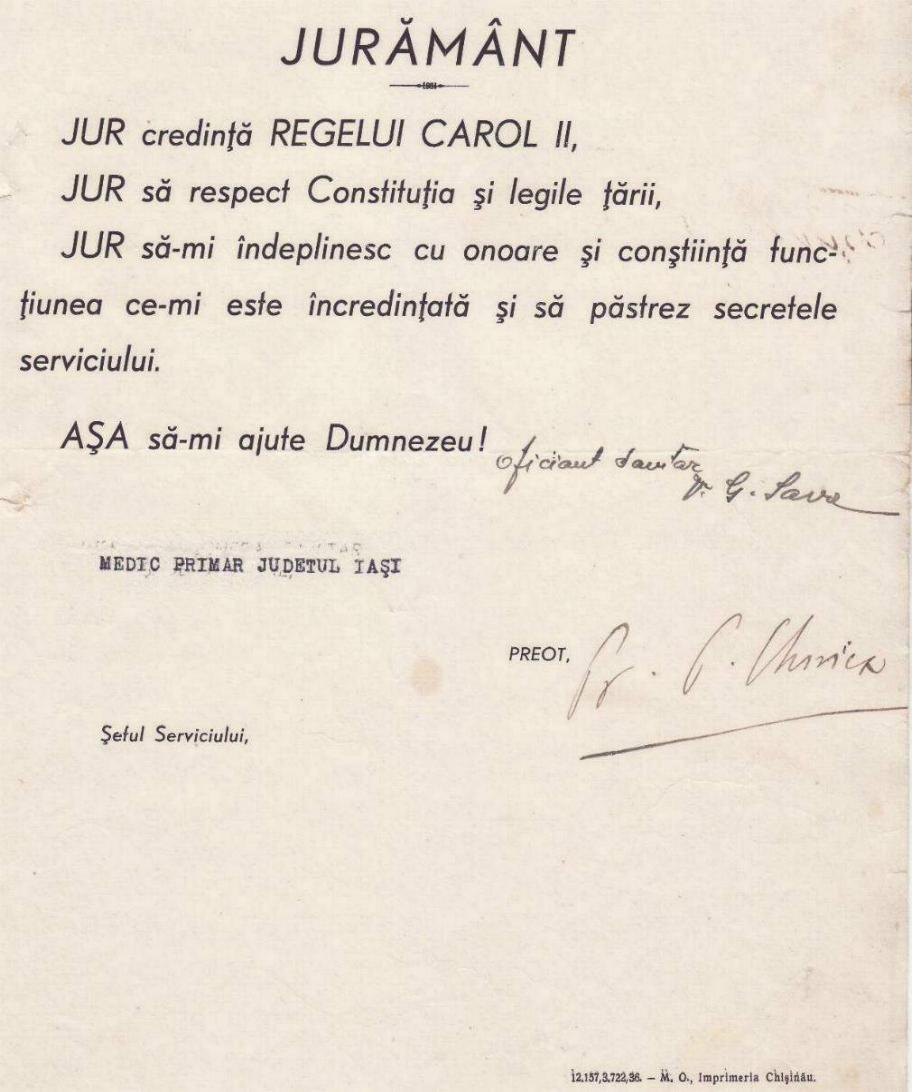 JURĂMÂNT
JUR credinţă REGELUI CAROL II,
JUR să respect Constituţia şi legile ţării,
JUR să-mi îndeplinesc cu onoare şi conştiinţă func-
ţiunea ce-mi este încredinţată şi să păstrez secretele
serviciului.
AŞA să-mi ajute Dumnezeu!
oficiant sanitar
G. Sava
MEDIC PRIMAR JUDETUL IAŞI
PREOT, Pr. P.
Şeful Serviciului,
12.157,3.722,36. — M. O., Imprimeria Chişinău.